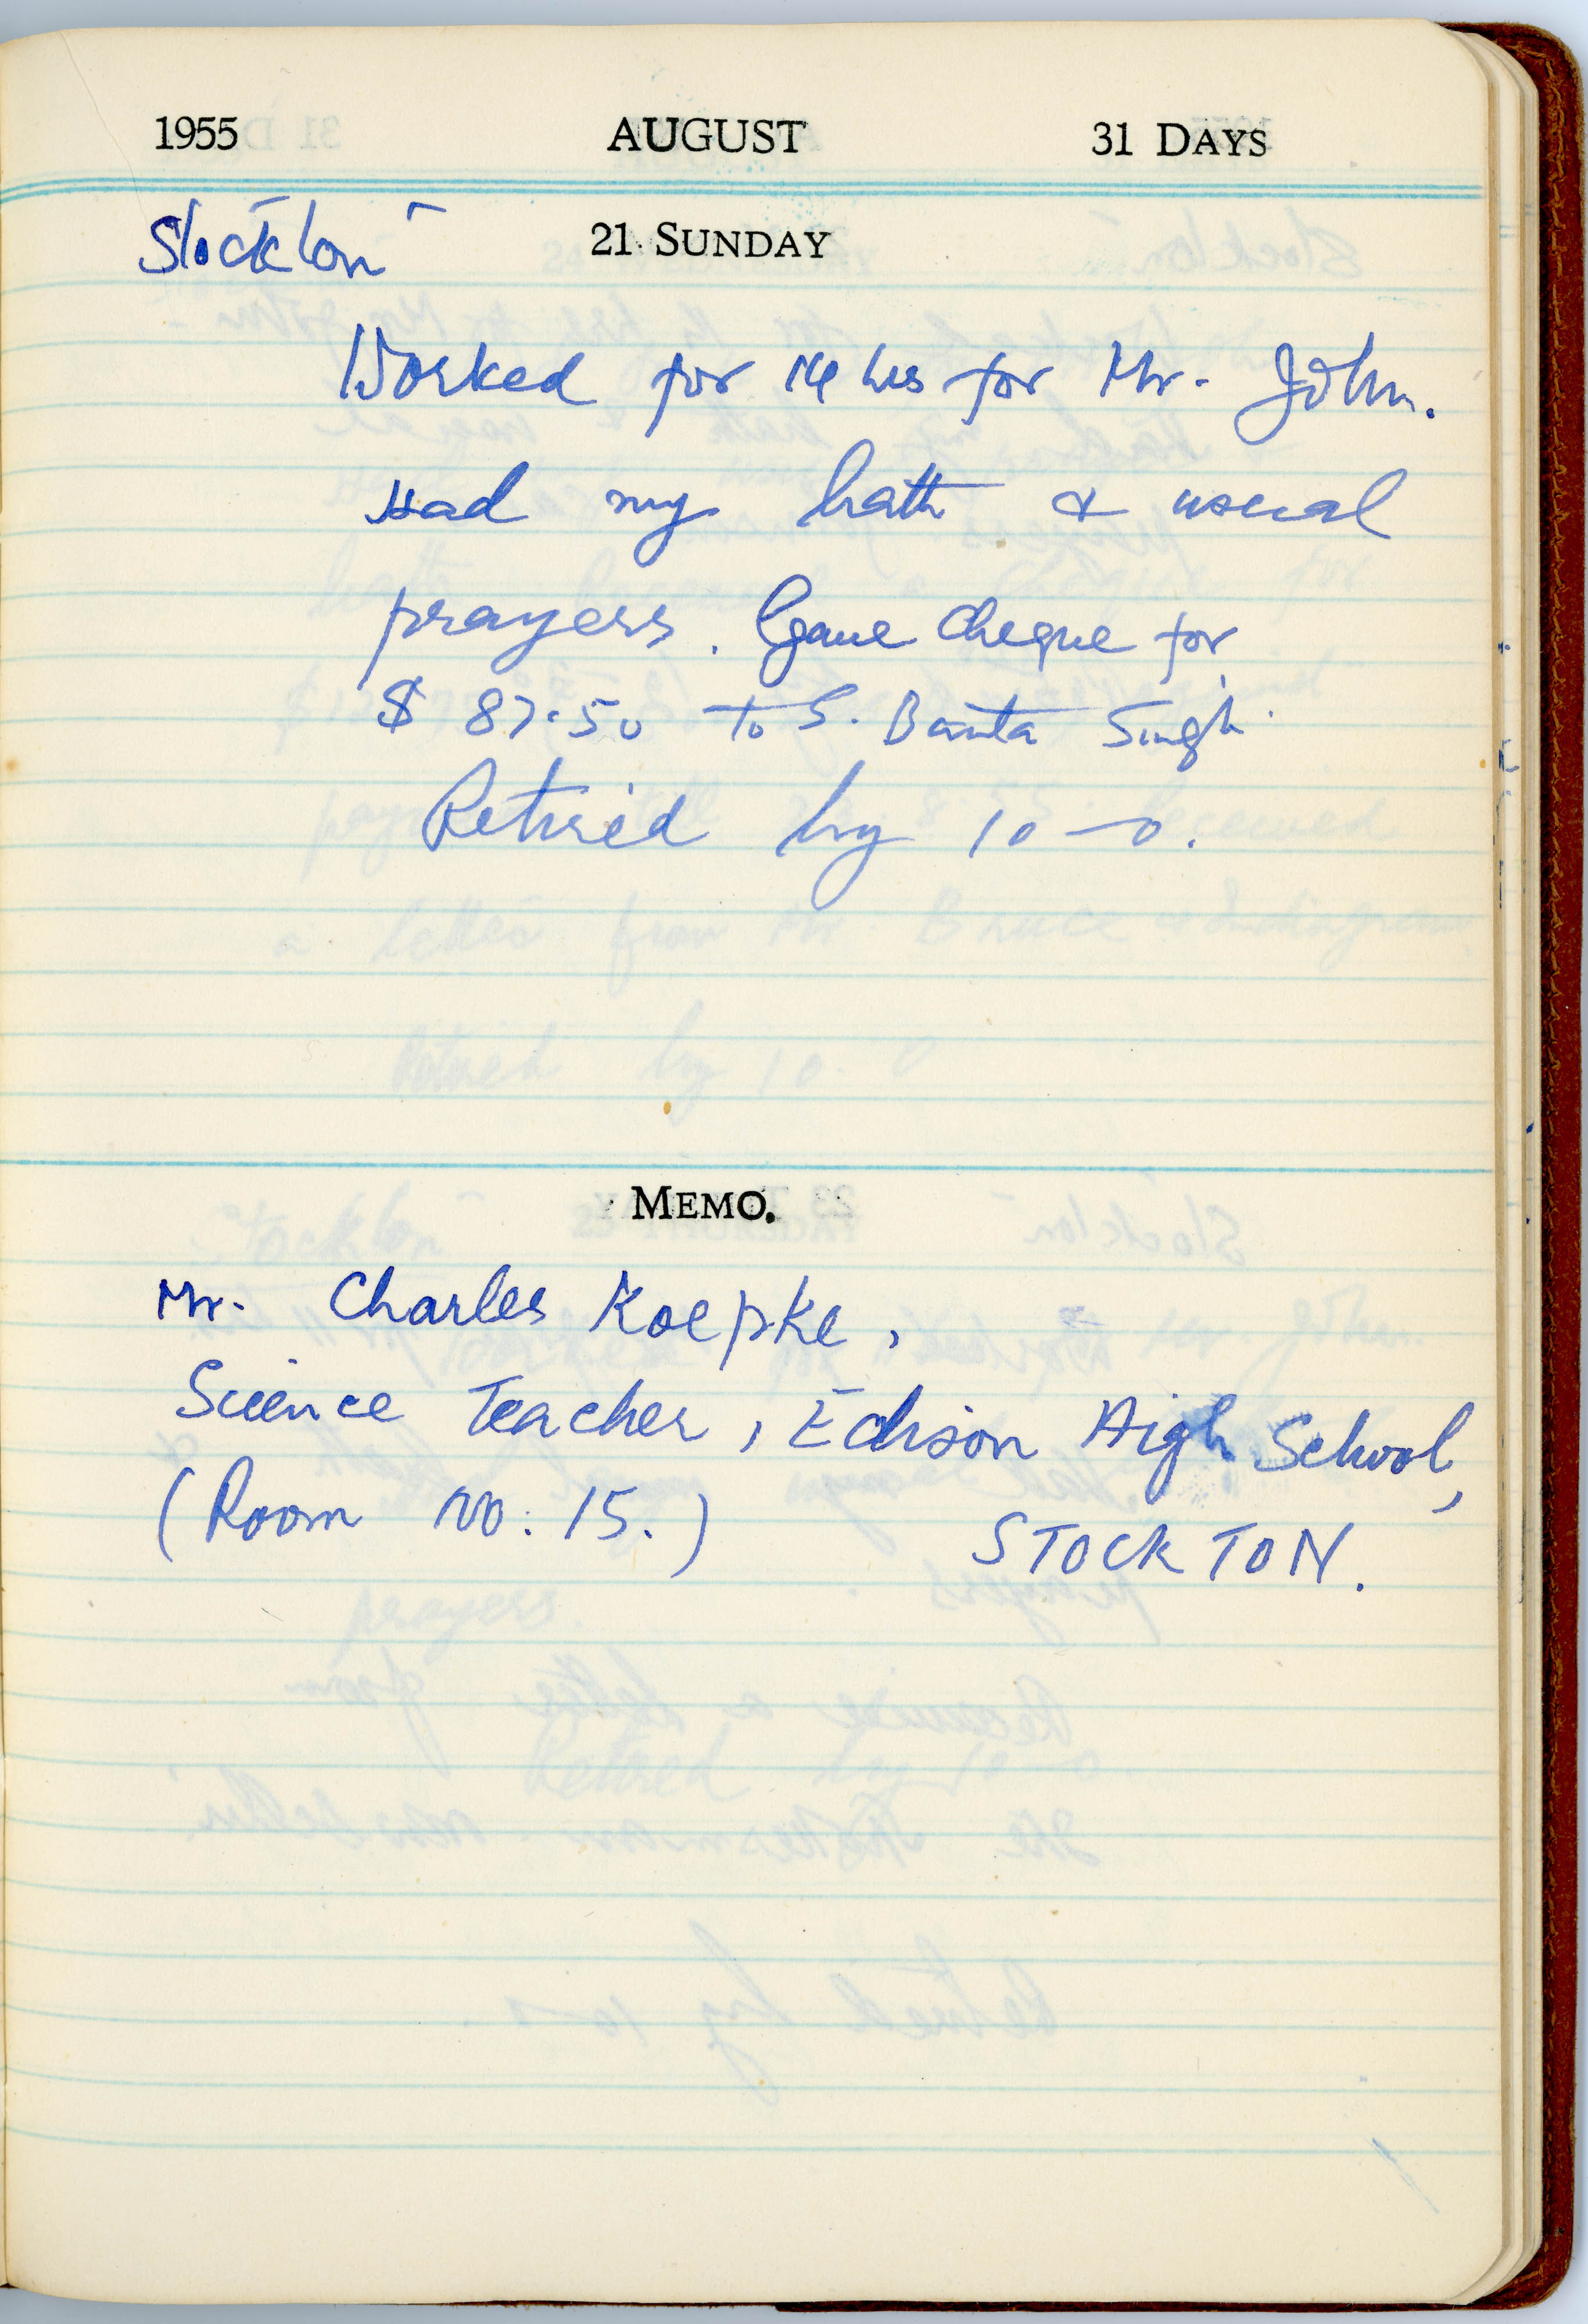 1955 AUGUST 31 DAYS
Stockton 21 SUNDAY
Worked for 14 hrs for Mr. John.
Had my bath & usual
prayers. Gave cheque for
$ 87.50 to S. Banta Singh.
Retired by 10-0.
MEMO.
Mr. Charles Koepke,
Science Teacher, Edison High School,
(Room No. 15.) STOCKTON.